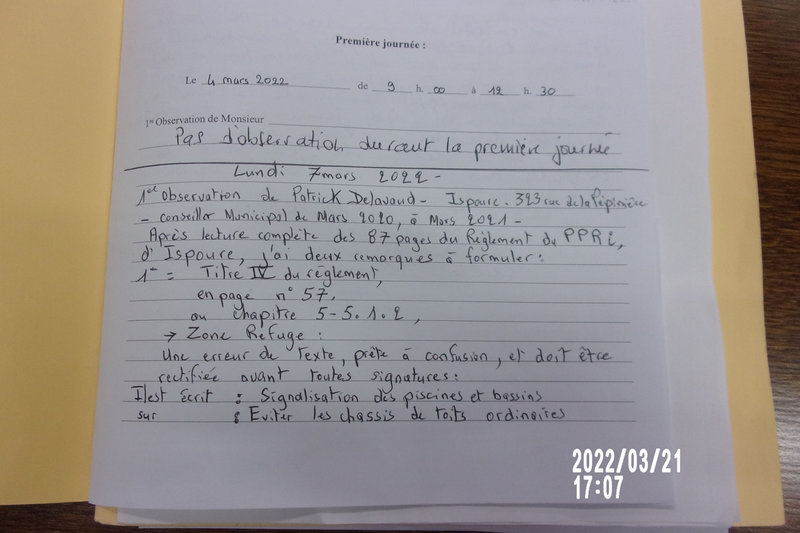 Première journée :
Le 4 mars 2022 de 9 h. 00 à 12 h. 30
1re Observation de Monsieur
Pas d'observation durant la première journée
Lundi 7 mars 2022 -
1ere Observation de Patrick Delavaud - Ispoure. 323 rue de la Pépinière
- Conseiller Municipal de Mars 2020, à Mars 2021 -
Après lecture complète des 87 pages du Règlement du PPRi,
d'Ispoure, j'ai deux remarques à formuler :
1re = Titre IV du règlement,
en page n° 57,
au chapitre 5-5.1.2,
→ Zone Refuge :
Une erreur de texte, prête à confusion, et doit être
rectifiée avant toutes signatures :
Il est écrit : Signalisation des piscines et bassins
sur : Eviter les chassis de toits ordinaires
2022/03/21
17:07